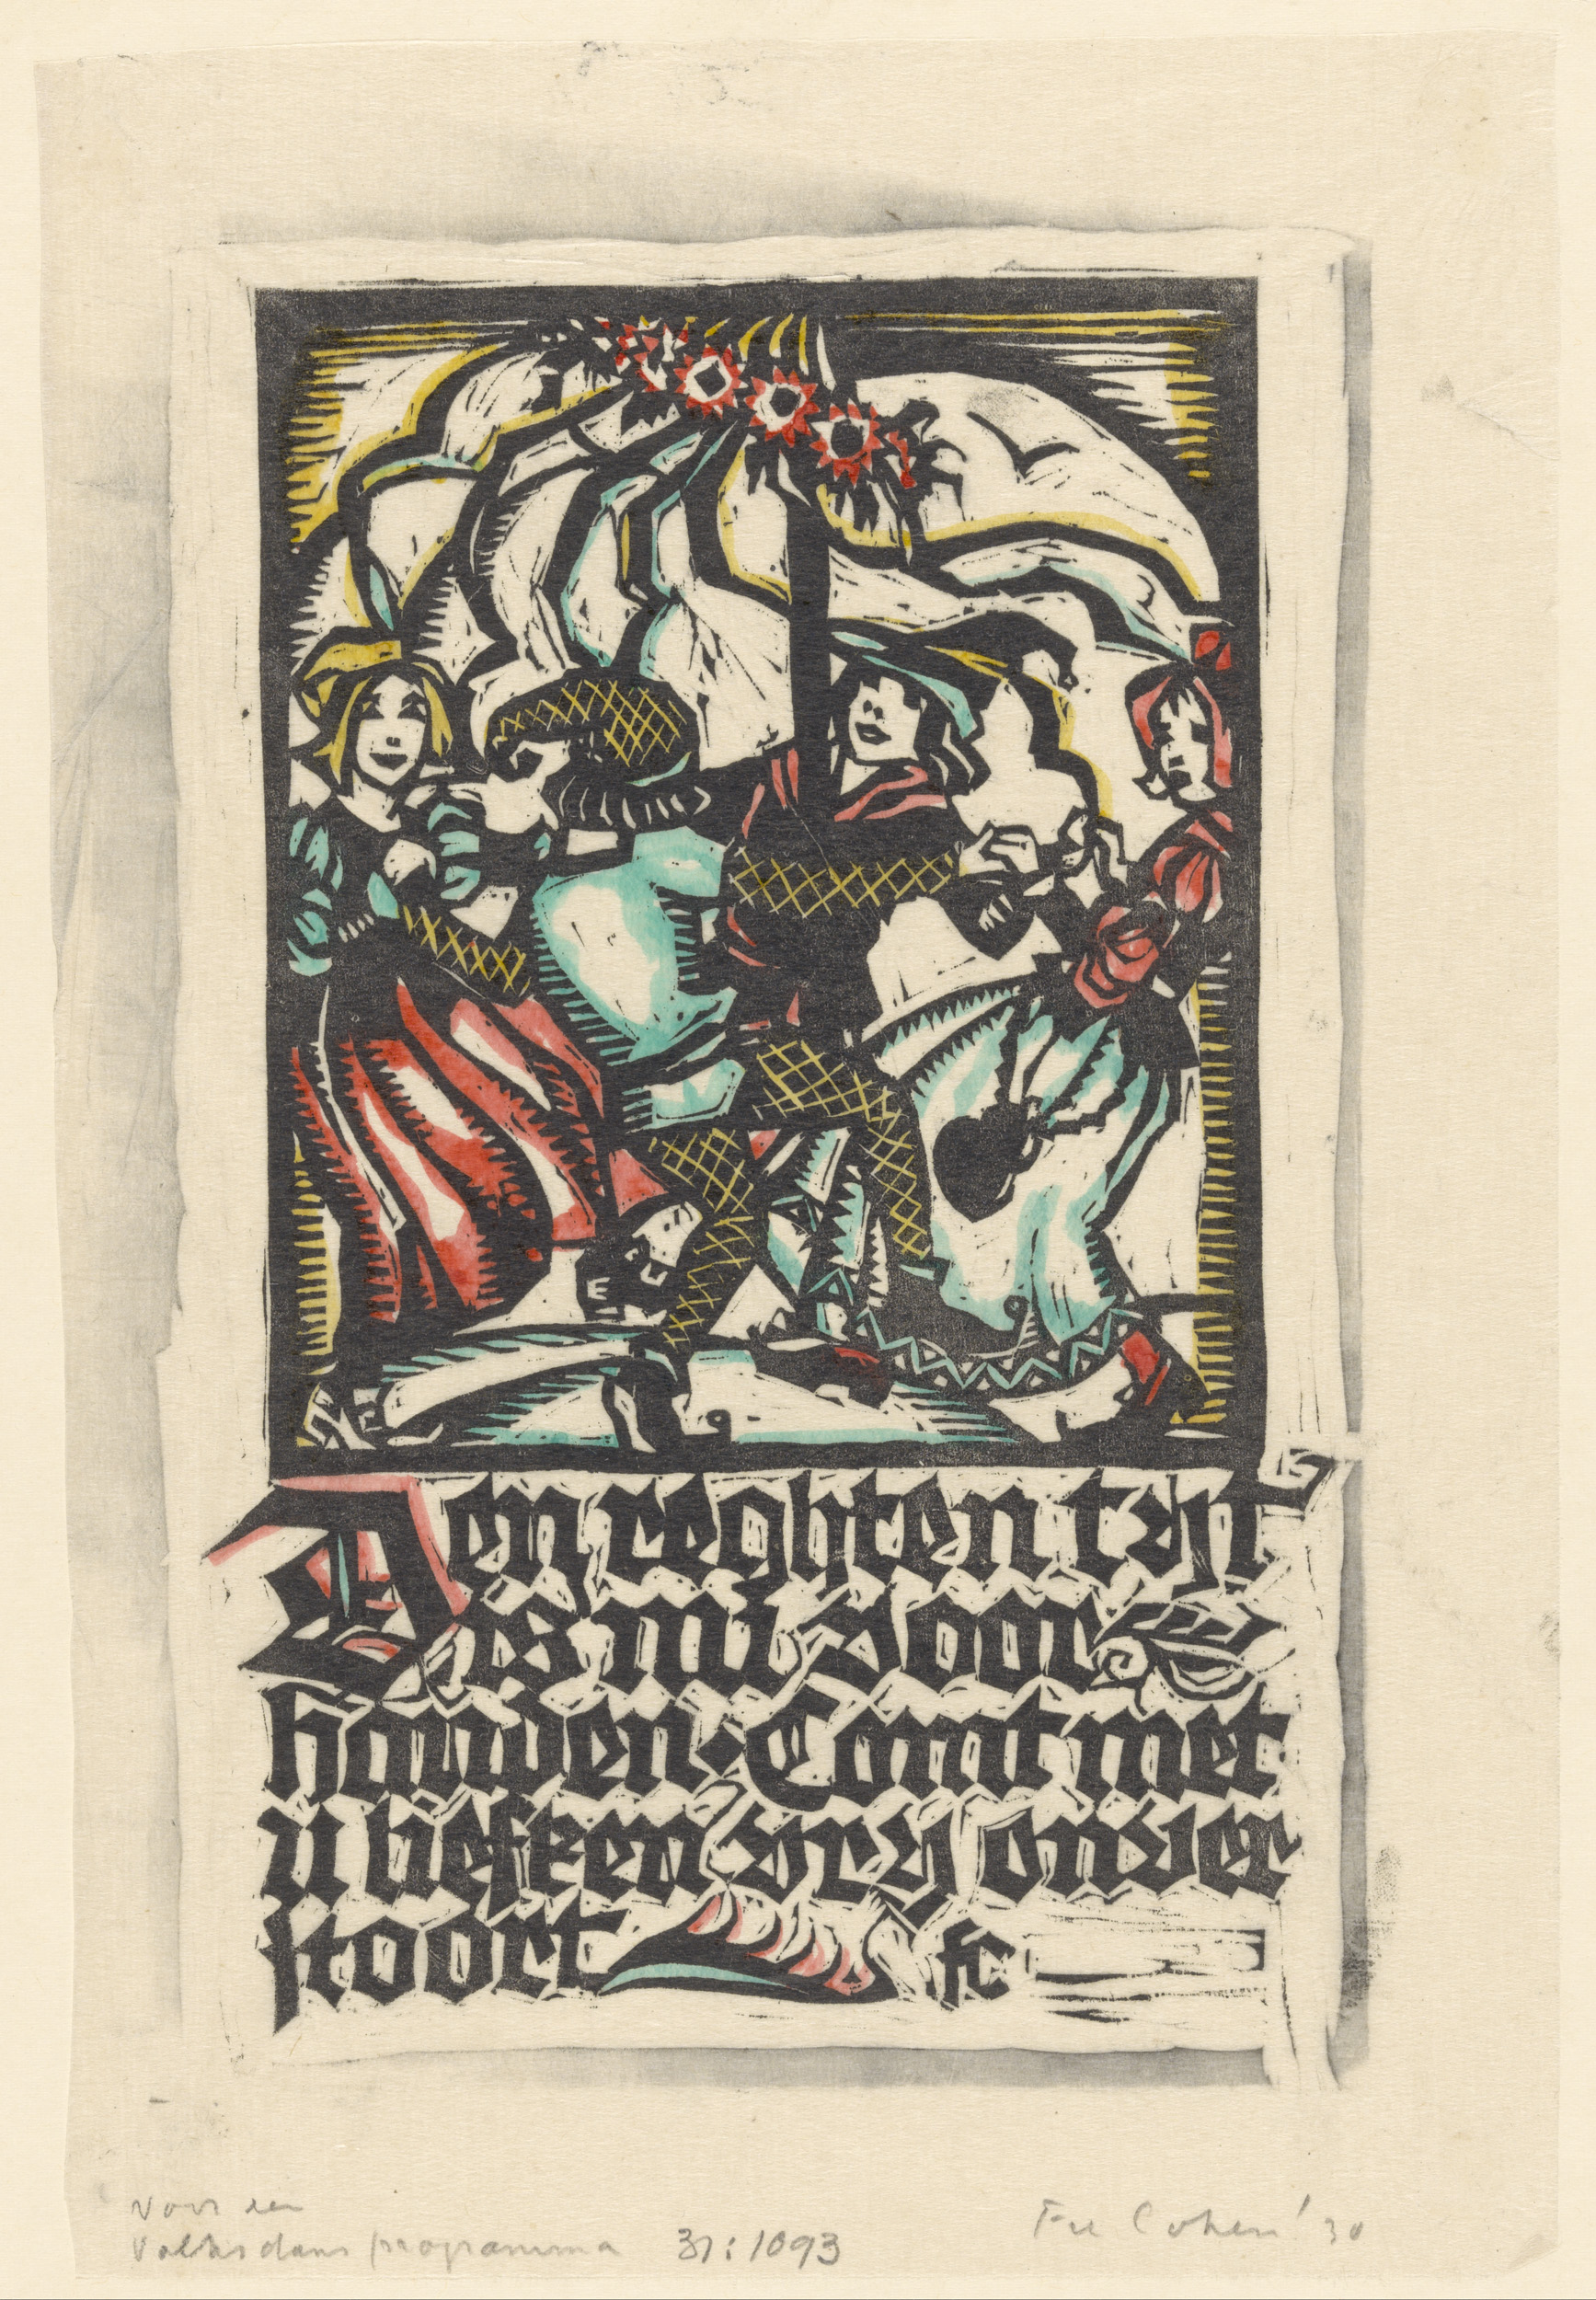 Den reghten tijt
is nu voor
handen: Comt met
u liefken vry onver
stoort
fc
Voor een
Volksdans programma 31:1093
Fré Cohen '30